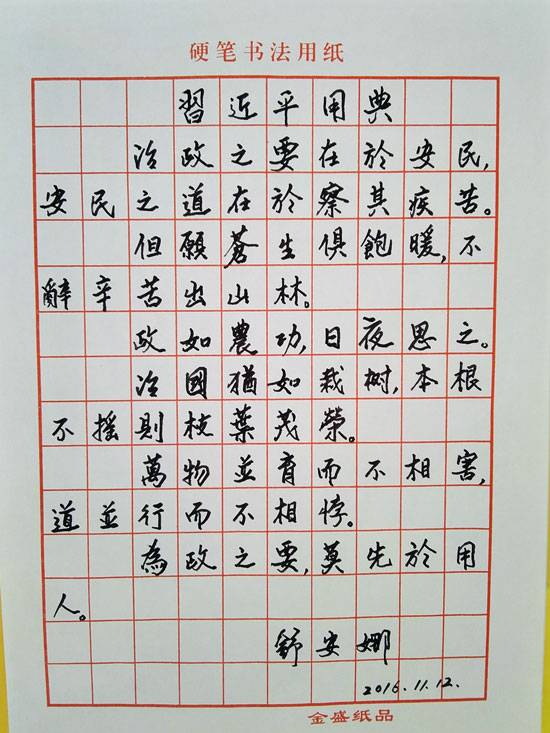 硬笔书法用纸
習近平用典
治政之要在於安民,
安民之道在於察其疾苦。
但願蒼生俱飽暖,不
辭辛苦出山林。
政如農功,日夜思之。
治國猶如栽树,本根
不摇則枝葉茂榮。
萬物並育而不相害,
道並行而不相悖。
為政之要,莫先於用
人。
舒安娜
2016.11.12.
金盛纸品